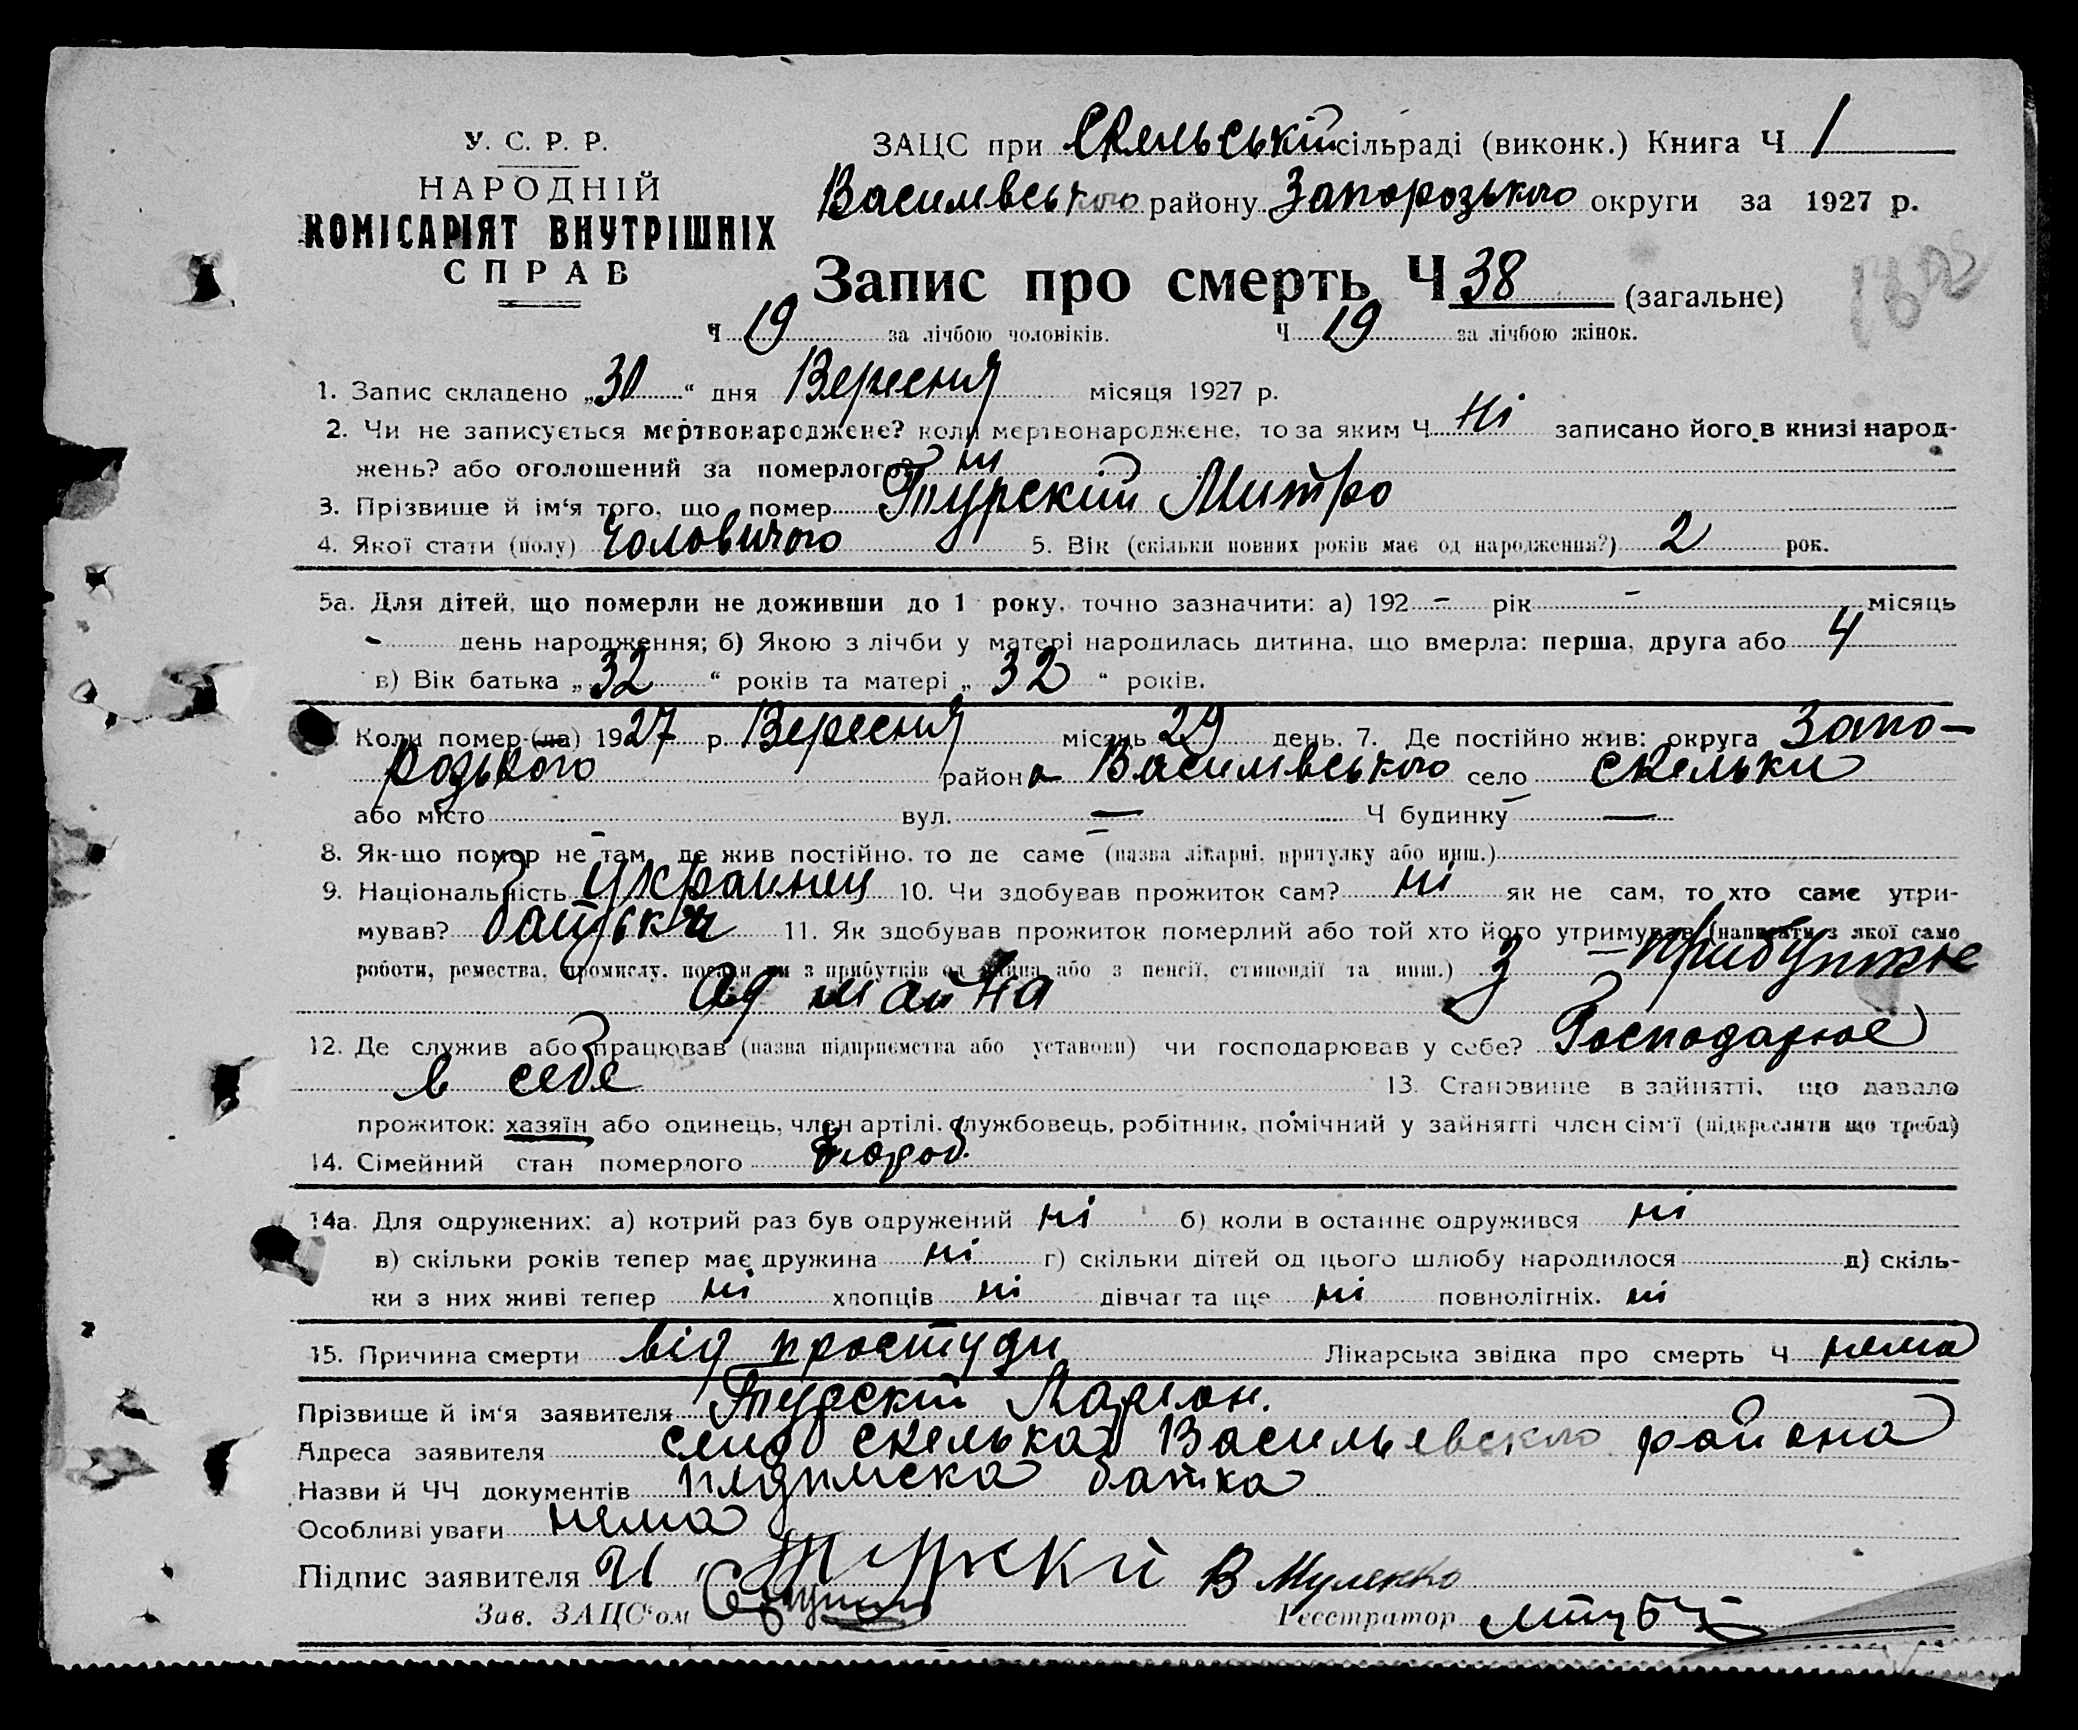 У. С. Р. Р.
НАРОДНІЙ
КОМІСАРІЯТ ВНУТРІШНІХ
СПРАВ
ЗАЦС при Скельській сільраді (виконк.) Книга Ч 1
Василівського району Запорозького округи за 1927 р.
Запис про смерть Ч 38 (загальне)
Ч 19 за лічбою чоловіків. Ч 19 за лічбою жінок.
1. Запис складено „30“ дня Вересня місяця 1927 р.
2. Чи не записується мертвонароджене? коли мертвонароджене, то за яким Ч Ні записано його в книзі народ-
жень? або оголошений за померлого? ні
3. Прізвище й ім'я того, що помер Турскій Митро
4. Якої стати (полу) Чоловичого 5. Вік (скільки повних років має од народження?) 2 рок.
5а. Для дітей, що померли не доживши до 1 року, точно зазначити: а) 192 - рік - місяць
- день народження; б) Якою з лічби у матері народилась дитина, що вмерла: перша, друга або 4
в) Вік батька „32“ років та матері „32“ років.
Коли помер (ла) 1927 р. Вересня місяць 29 день. 7. Де постійно жив: округа Запо-
розького район а Василівського село Скельки
або місто вул. — Ч будинку —
8. Як-що помер не там, де жив постійно, то де саме (назва лікарні, притулку або инш.)
9. Національність Украинец 10. Чи здобував прожиток сам? ні як не сам, то хто саме утри-
мував? батько 11. Як здобував прожиток померлий або той хто його утримував (написати з якої само
роботи, ремества, промислу, посади чи з прибутків од майна або з пенсії, стипендії та инш.) З -прибутків
од майна
12. Де служив або працював (назва підприємства або установи) чи господарював у себе? Господарює
в себе 13. Становище в зайнятті, що давало
прожиток: хазяїн або одинець, член артілі, службовець, робітник, помічний у зайнятті член сім'ї (підкреслити що треба)
14. Сімейний стан померлого
14а. Для одружених: а) котрий раз був одружений ні б) коли в останнє одружився ні
в) скільки років тепер має дружина ні г) скільки дітей од цього шлюбу народилося д) скіль-
ки з них живі тепер ні хлопців ні дівчат та ще ні повнолітніх. ні
15. Причина смерти від простуди Лікарська звідка про смерть Ч нема
Прізвище й ім'я заявителя Турскій Ларіон.
Адреса заявителя село скелька Васильевского района
Назви й ЧЧ документів батка
Особливі уваги нема
Підпис заявителя Турский В
Зав. ЗАЦС'ом Реєстратор